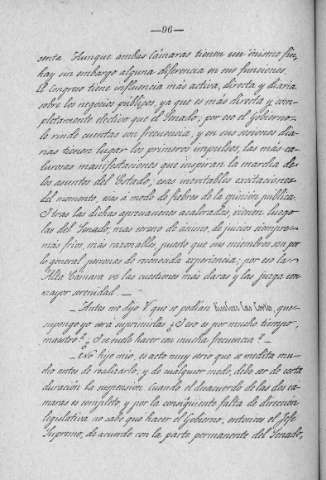 —96—
senta. Aunque ambas Cámaras tienen un mismo fin,
hay sin embargo alguna diferencia en sus funciones.
El Congreso tiene influencia más activa, directa y diaria
sobre los negocios públicos, ya que es más directa y com-
pletamente electivo que el Senado; por eso el Gobierno
le rinde cuentas con frecuencia, y en sus sesiones dia-
rias tienen lugar los primeros impulsos, las más ca-
lurosas manifestaciones que inspiran la marcha de
los asuntos del Estado, esas inevitables excitaciones
del momento, eso á modo de fiebres de la opinión pública.
Tras las dichas apreciaciones acaloradas, vienen luego
las del Senado, más sereno de ánimo, de juicio siempre
más frío, más razonable, puesto que sus miembros son por
lo general personas de reconocida experiencia; por eso la
Alta Cámara ve las cuestiones más claras y las juzga con
mayor serenidad. —
—Antes me dijo V. que se podían disolver las Cortes, que
supongo yo será suprimirlas ¿Y eso es por mucho tiempo,
maestro? ¿Y se suele hacer con mucha frecuencia? —
—No hijo mío, es acto muy serio que se medita mu-
cho antes de realizarlo, y de cualquier modo, debe ser de corta
duración la suspensión. Cuando el desacuerdo de las dos cá-
maras es completo, y por la consiguiente falta de dirección
legislativa no sabe qué hacer el Gobierno, entonces el Jefe
Supremo, de acuerdo con la parte permanente del Senado,